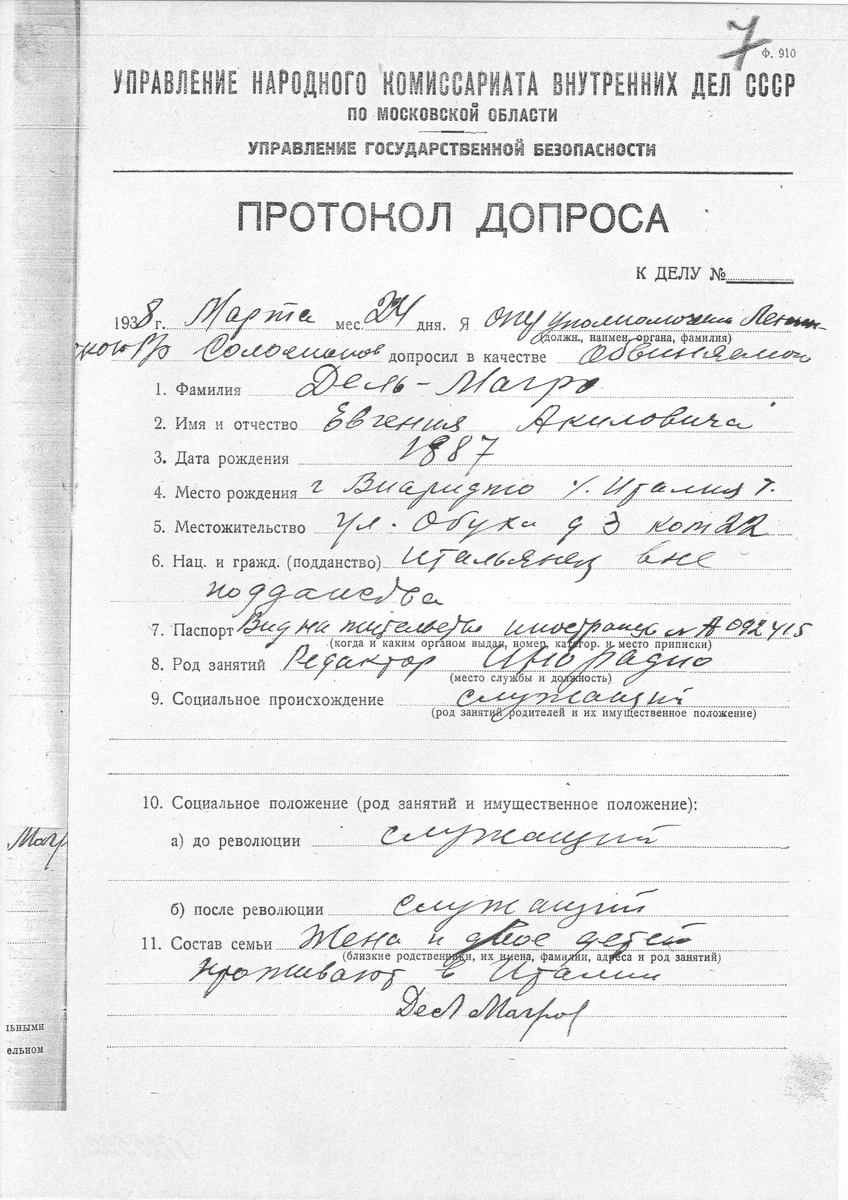 7
Ф. 910
УПРАВЛЕНИЕ НАРОДНОГО КОМИССАРИАТА ВНУТРЕННИХ ДЕЛ СССР
ПО МОСКОВСКОЙ ОБЛАСТИ
УПРАВЛЕНИЕ ГОСУДАРСТВЕННОЙ БЕЗОПАСНОСТИ
ПРОТОКОЛ ДОПРОСА
К ДЕЛУ №
1938 г. Марта мес. 24 дня. Я опер уполномочен Ленин-
(должн., наимен. органа, фамилия)
допросил в качестве обвиняемого
1. Фамилия Дель-Магро
2. Имя и отчество Евгения Акиловича
3. Дата рождения 1887
4. Место рождения г Виареджио Италия
5. Местожительство ул. Обуха д 3 ком 22
6. Нац. и гражд. (подданство) итальянец вне
подданства
7. Паспорт Вид на жительство иностранца № А 092415
(когда и каким органом выдан, номер, категор. и место приписки)
8. Род занятий Редактор Инорадио
(место службы и должность)
9. Социальное происхождение служащий
(род занятий родителей и их имущественное положение)
10. Социальное положение (род занятий и имущественное положение):
а) до революции служащий
б) после революции служащий
11. Состав семьи Жена и двое детей
(близкие родственники, их имена, фамилии, адреса и род занятий)
проживают в Италии
Магр
ьными
ельном